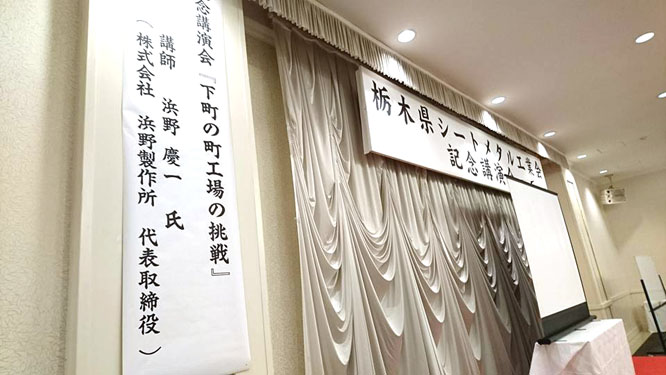 念講演会『下町の町工場の挑戦』
講師　浜野　慶一　氏
（株式会社　浜野製作所　代表取締役）
栃木県シートメタル工業会
記念講演